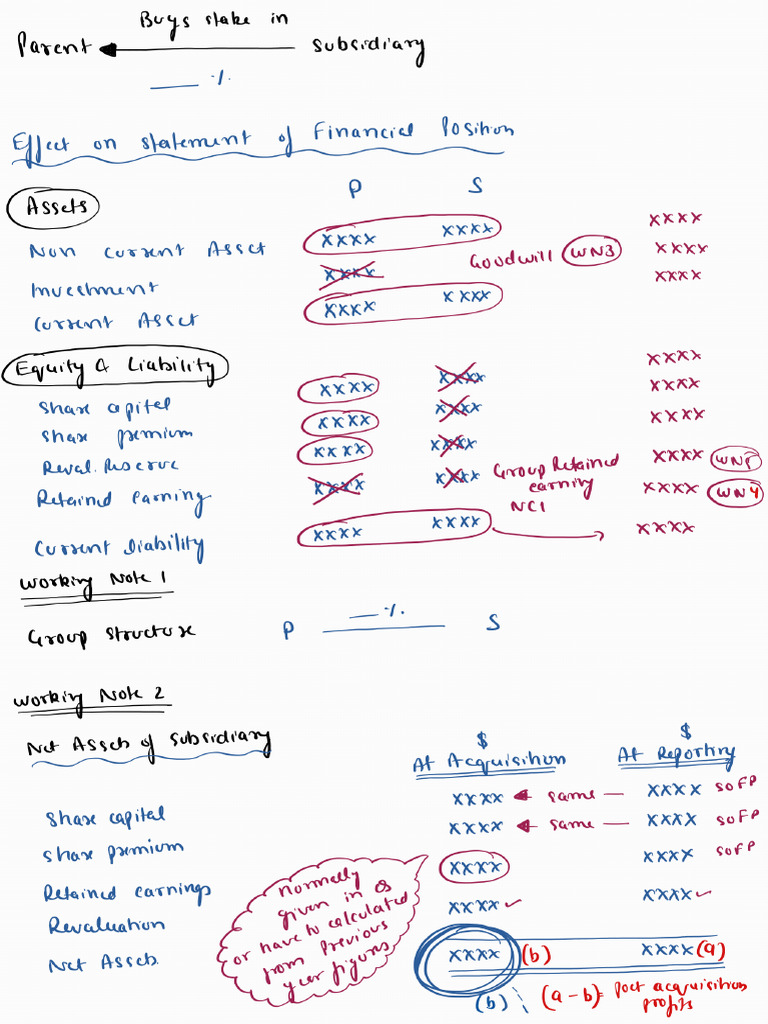 Buys stake in
Parent ◀ subsidiary
___ %
Effect on statement of Financial Position
P S
Assets
Non current Asset XXXX XXXX XXXX
Goodwill WN3 XXXX
Investment XXXX XXXX
Current Asset XXXX XXXX
Equity & Liability XXXX
Share capital XXXX XXXX XXXX
Share premium XXXX XXXX XXXX
Reval. Reserve XXXX XXXX
Retained earning XXXX XXXX Group Retained earning XXXX
NCI XXXX WN4
Current Liability XXXX XXXX XXXX
Working Note 1
Group Structure P ___ % S
Working Note 2
Net Assets of subsidiary
$ $
At Acquisition At Reporting
Share capital XXXX ◀ same — XXXX SOFP
Share premium XXXX ◀ same — XXXX SOFP
Retained earnings XXXX XXXX SOFP
Revaluation XXXX ✓ XXXX ✓
Net Assets XXXX (b) XXXX (a)
(b) (a-b) = Post acquisition profits
normally
given in Qs
or have to calculated
from previous
year figures